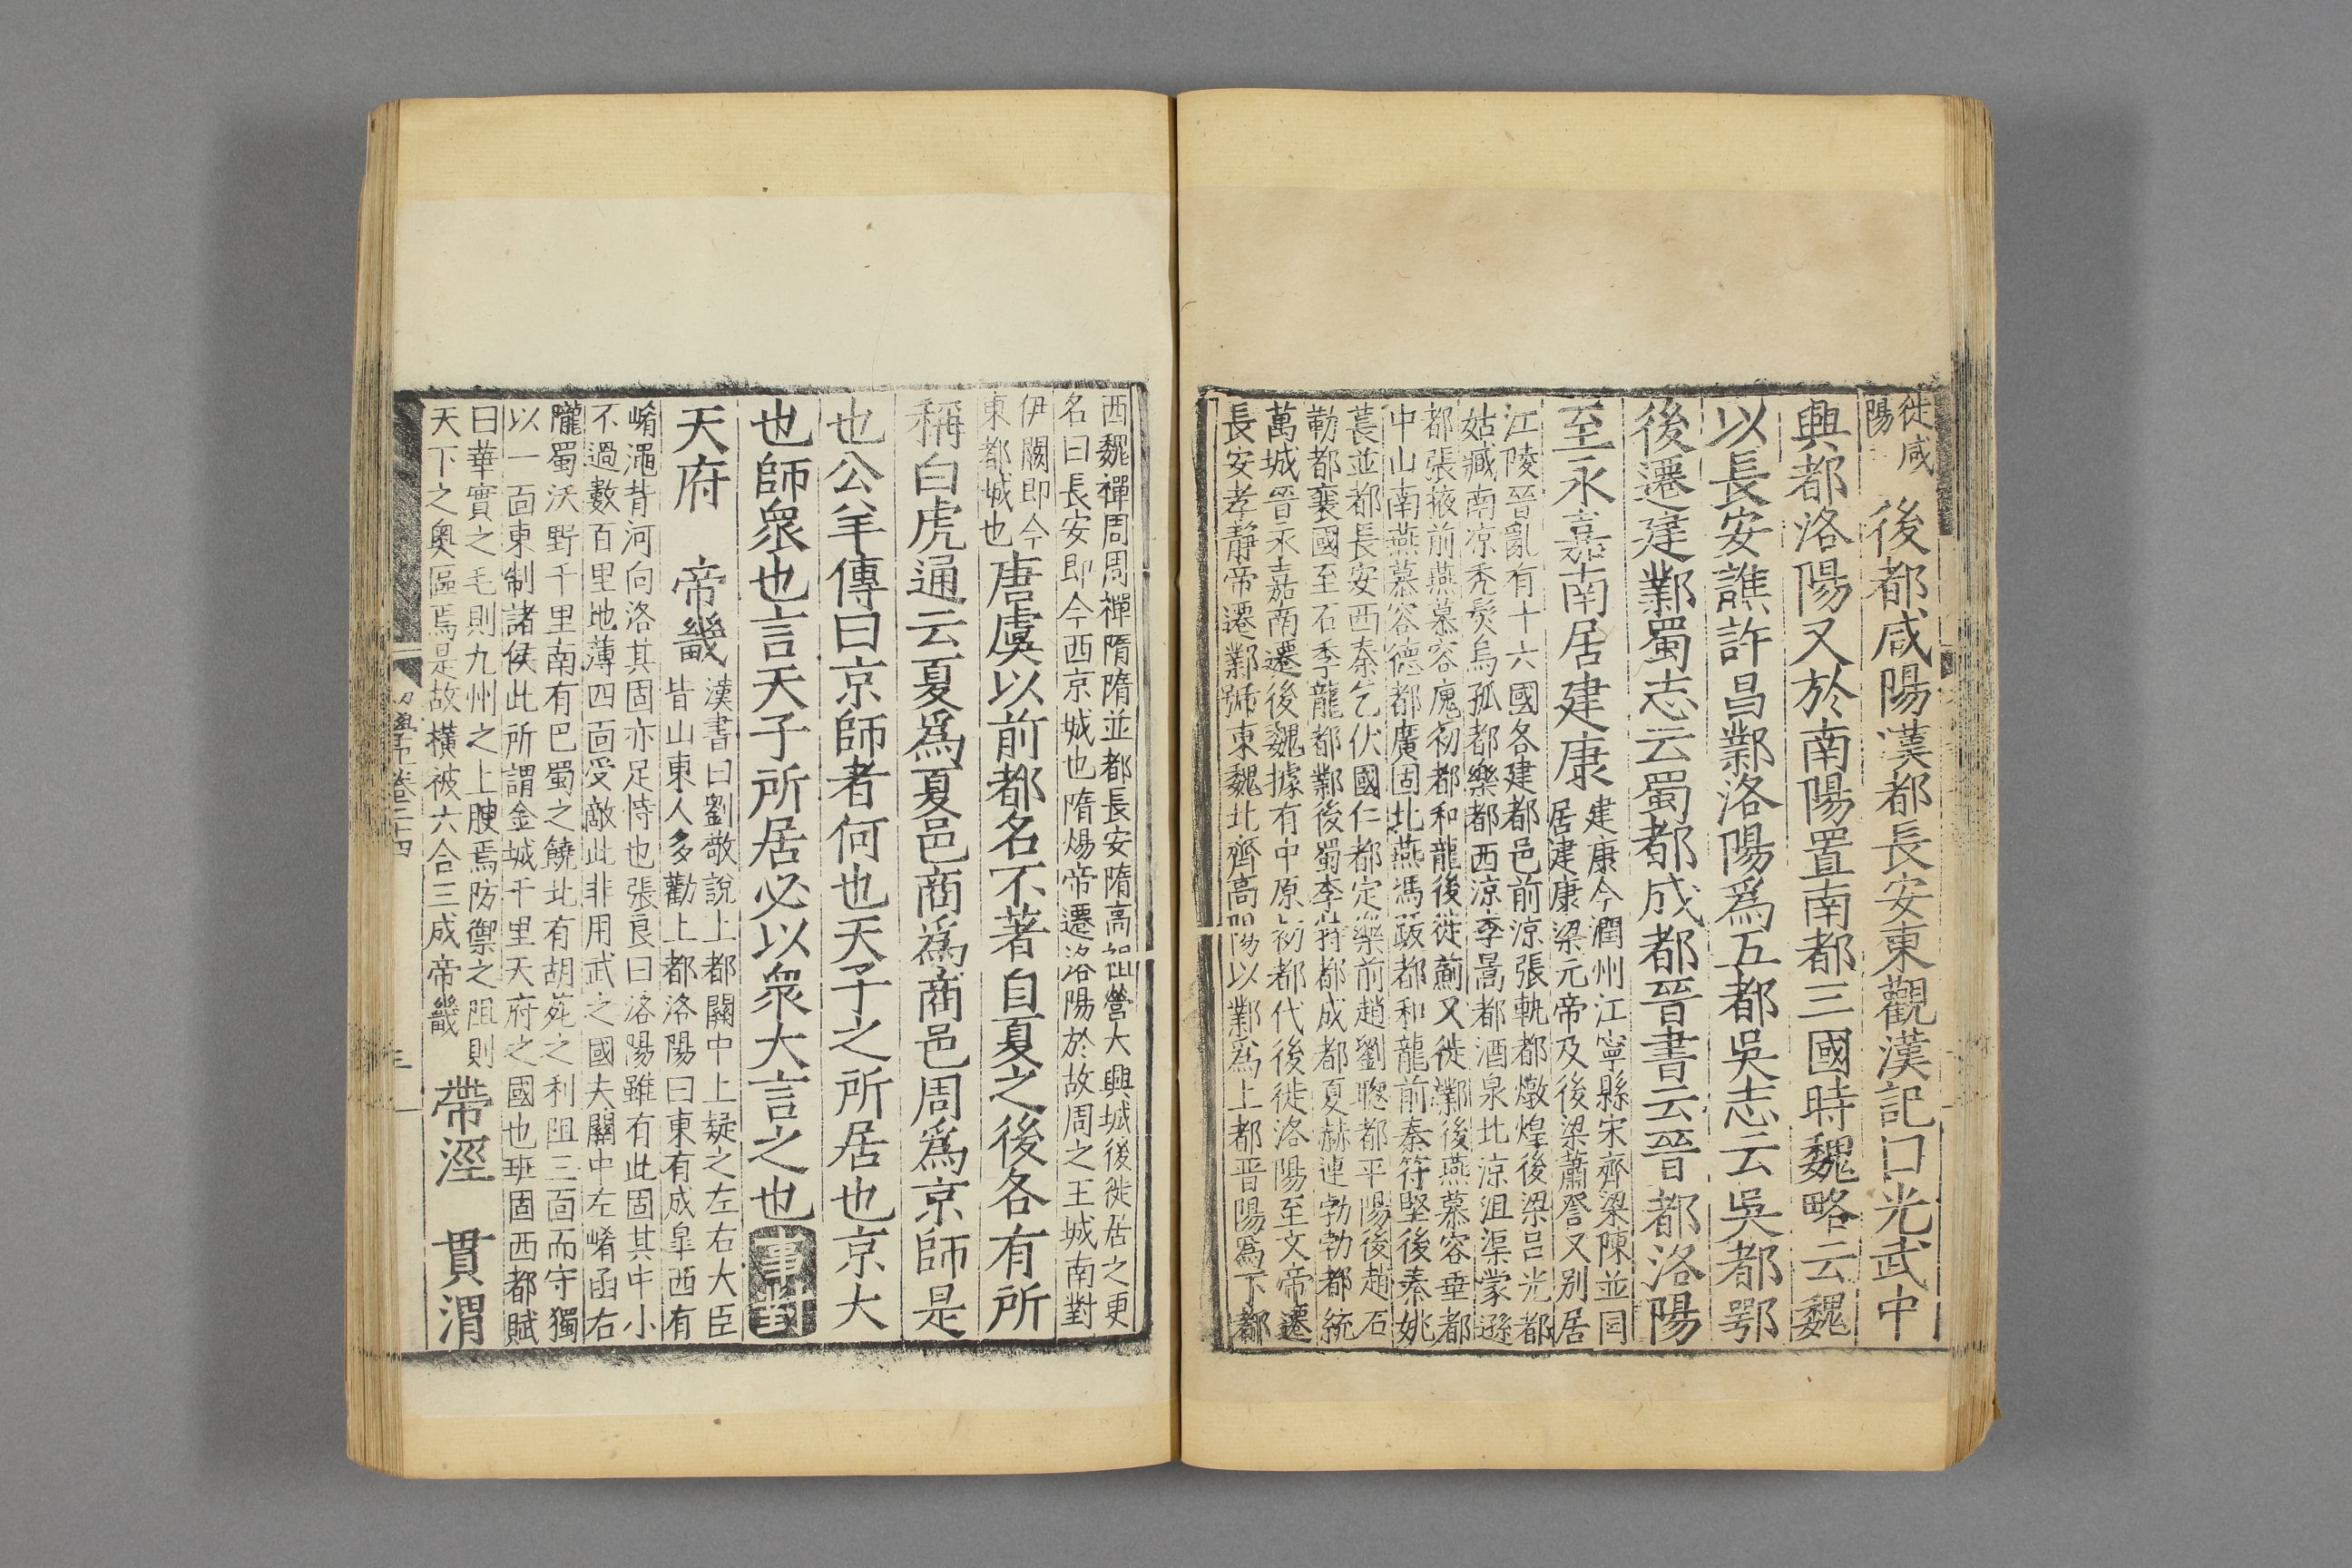 徙咸
陽
後都咸陽漢都長安東觀漢記曰光武中
興都洛陽又於南陽置南都三國時魏略云魏
以長安譙許昌鄴洛陽爲五都吳志云吳都鄂
後遷建鄴蜀志云蜀都成都晉書云晉都洛陽
至永嘉南居建康
建康今潤州江寧縣宋齊梁陳並同
居建康梁元帝及後梁蕭詧又別居
江陵晉亂有十六國各建都邑前涼張軌都燉煌後梁呂光都
姑臧南凉禿髮烏孤都樂都西涼李暠都酒泉北涼沮渠蒙遜
都張掖前燕慕容廆初都和龍後徙薊又徙鄴後燕慕容垂都
中山南燕慕容德都廣固北燕馮跋都和龍前秦苻堅後秦姚
萇並都長安西秦乞伏國仁都定樂前趙劉聰都平陽後趙石
勒都襄國至石季龍都鄴後蜀李特都成都夏赫連勃勃都統
萬城晉永嘉南遷後魏據有中原初都代後徙洛陽至文帝遷
長安孝靜帝遷鄴號東魏北齊高陽以鄴爲上都晉陽爲下都
西魏禪周周禪隋隋並都長安隋高祖營大興城後徙居之更
名曰長安即今西京城也隋煬帝遷洛陽於故周之王城南對
伊闕即今
東都城也
唐虞以前都名不著自夏之後各有所
稱白虎通云夏爲夏邑商爲商邑周爲京師是
也公羊傳曰京師者何也天子之所居也京大
也師衆也言天子所居必以衆大言之也 事對
天府 帝畿
漢書曰劉敬說上都關中上疑之左右大臣
皆山東人多勸上都洛陽曰東有成皐西有
崤澠背河向洛其固亦足恃也張良曰洛陽雖有此固其中小
不過數百里地薄四面受敵此非用武之國夫關中左崤函右
隴蜀沃野千里南有巴蜀之饒北有胡苑之利阻三面而守獨
以一面東制諸侯此所謂金城千里天府之國也班固西都賦
曰華實之毛則九州之上腴焉防禦之阻則
天下之奧區焉是故橫被六合三成帝畿
帶涇 貫渭
初學記卷二十四
三